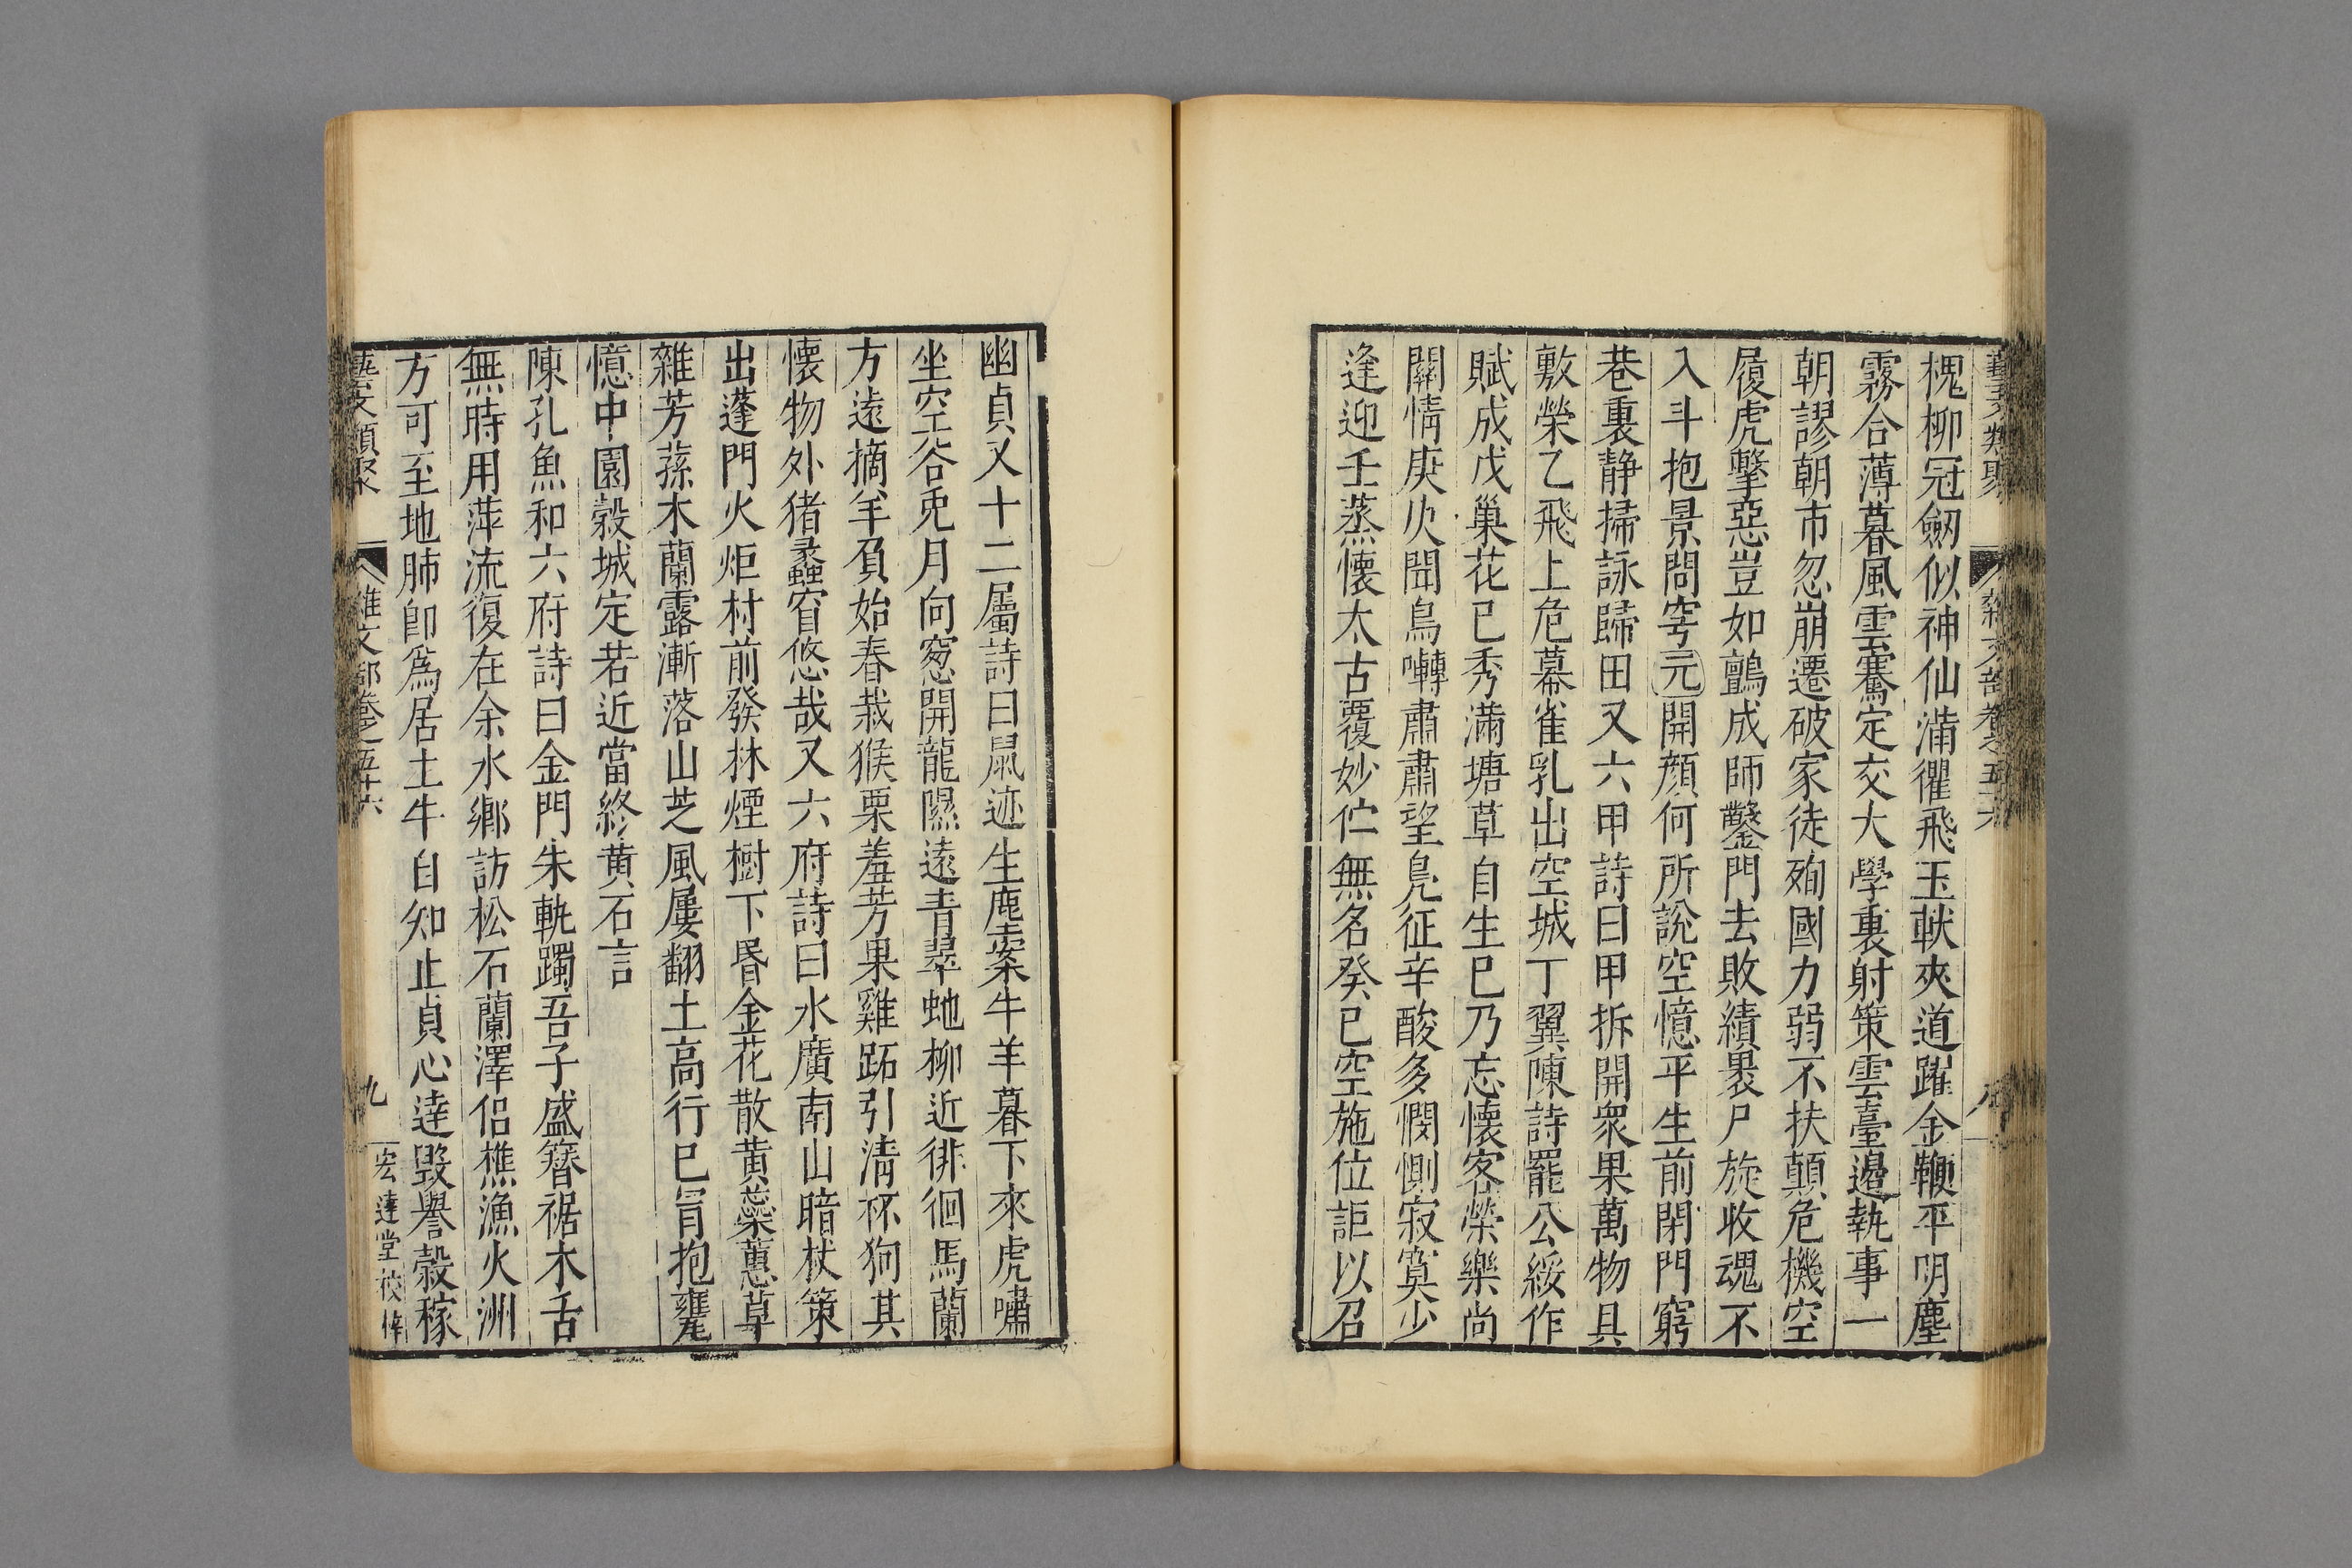 槐柳冠劒似神仙滿衢飛玉軑夾道躍金鞭平明塵
霧合薄暮風雲騫定交大學裏射策雲臺邊執事一
朝謬朝市忽崩遷破家徒殉國力弱不扶顛危機空
履虎擊惡豈如鸇成師鑿門去敗績裹尸旋收魂不
入斗抱景問穹元開顔何所説空憶平生前閉門窮
巷裏静掃詠歸田又六甲詩曰甲拆開衆果萬物具
敷榮乙飛上危幕雀乳出空城丁翼陳詩罷公綏作
賦成戊巢花已秀滿塘草自生巳乃忘懷客榮樂尚
關情庚庚聞鳥囀肅肅望鳧征辛酸多憫惻寂寞少
逢迎壬蒸懷太古覆妙伫無名癸巳空施位詎以召
幽貞又十二屬詩曰鼠迹生塵案牛羊暮下來虎嘯
坐空谷兎月向窓開龍隰遠青翠虵柳近徘徊馬蘭
方遠摘羊負始春栽猴栗羞芳果雞跖引清杯狗其
懷物外猪蠡窅悠哉又六府詩曰水廣南山暗杖策
出蓬門火炬村前發林煙樹下昬金花散黄蘂蕙草
雜芳蓀木蘭露漸落山芝風屢翻土高行巳冐抱甕
憶中園榖城定若近當終黄石言
陳孔魚和六府詩曰金門朱軌躅吾子盛簪裾木舌
無時用萍流復在余水鄉訪松石蘭澤侣樵漁火洲
方可至地肺卽爲居土牛自知止貞心達毀譽榖稼
藝文類聚 雜文部卷之五十六 九 宏達堂校